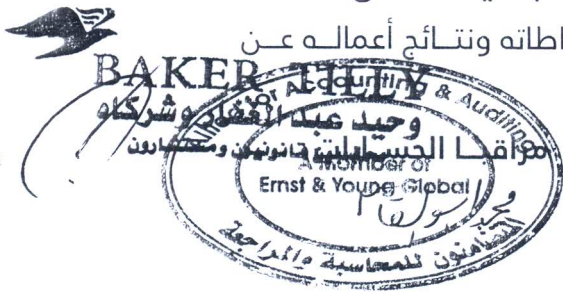 اطاته ونتــائج أعمالــه عــن
BAKER TILLY
وحيد عبد الغفار وشركاه
مراقبــا الحســابات
قانونيون ومستشارون
for Accounting & Auditing
A Member of
Ernst & Young Global
المتضامنون للمحاسبة والمراجعة